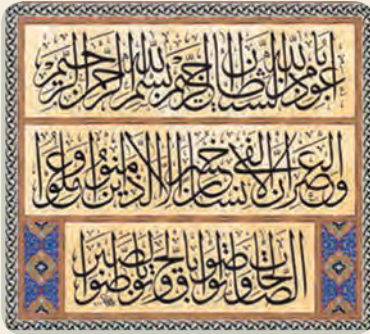 أعوذ بالله من الشيطان الرجيم بسم الله الرحمن الرحيم
والعصر إن الإنسان لفي خسر إلا الذين آمنوا وعملوا
الصالحات وتواصوا بالحق وتواصوا بالصبر